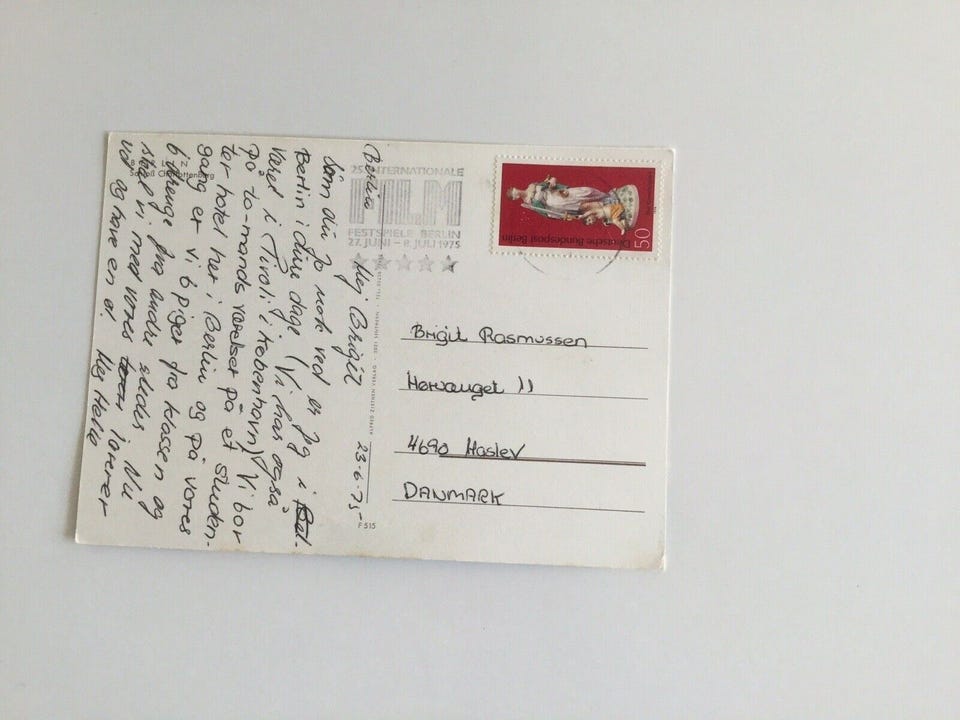 Berlin 23-6-75
Hej Brigit
Som du jo nok ved er jeg i
Berlin i dine dage (Vi har også
været i Tivoli i København) Vi bor
på to-mands værelser på et studen-
ter hotel her i Berlin og på vores
gang er vi 6 piger fra klassen og
6 drenge fra andre steder Nu
skal vi med vores lærerer
ud og have en øl Hej Helle
BERLIN
Schloß Charlottenburg
25. INTERNATIONALE
FILM
FESTSPIELE BERLIN
27. JUNI – 8. JULI 1975
Deutsche Bundespost Berlin
50
Brigit Rasmussen
11
4690 Haslev
DANMARK
F 515